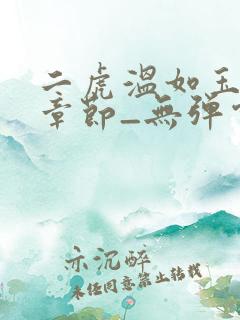 二虎温如玉
章节_无弹
示沉醉
未经同意禁止转载